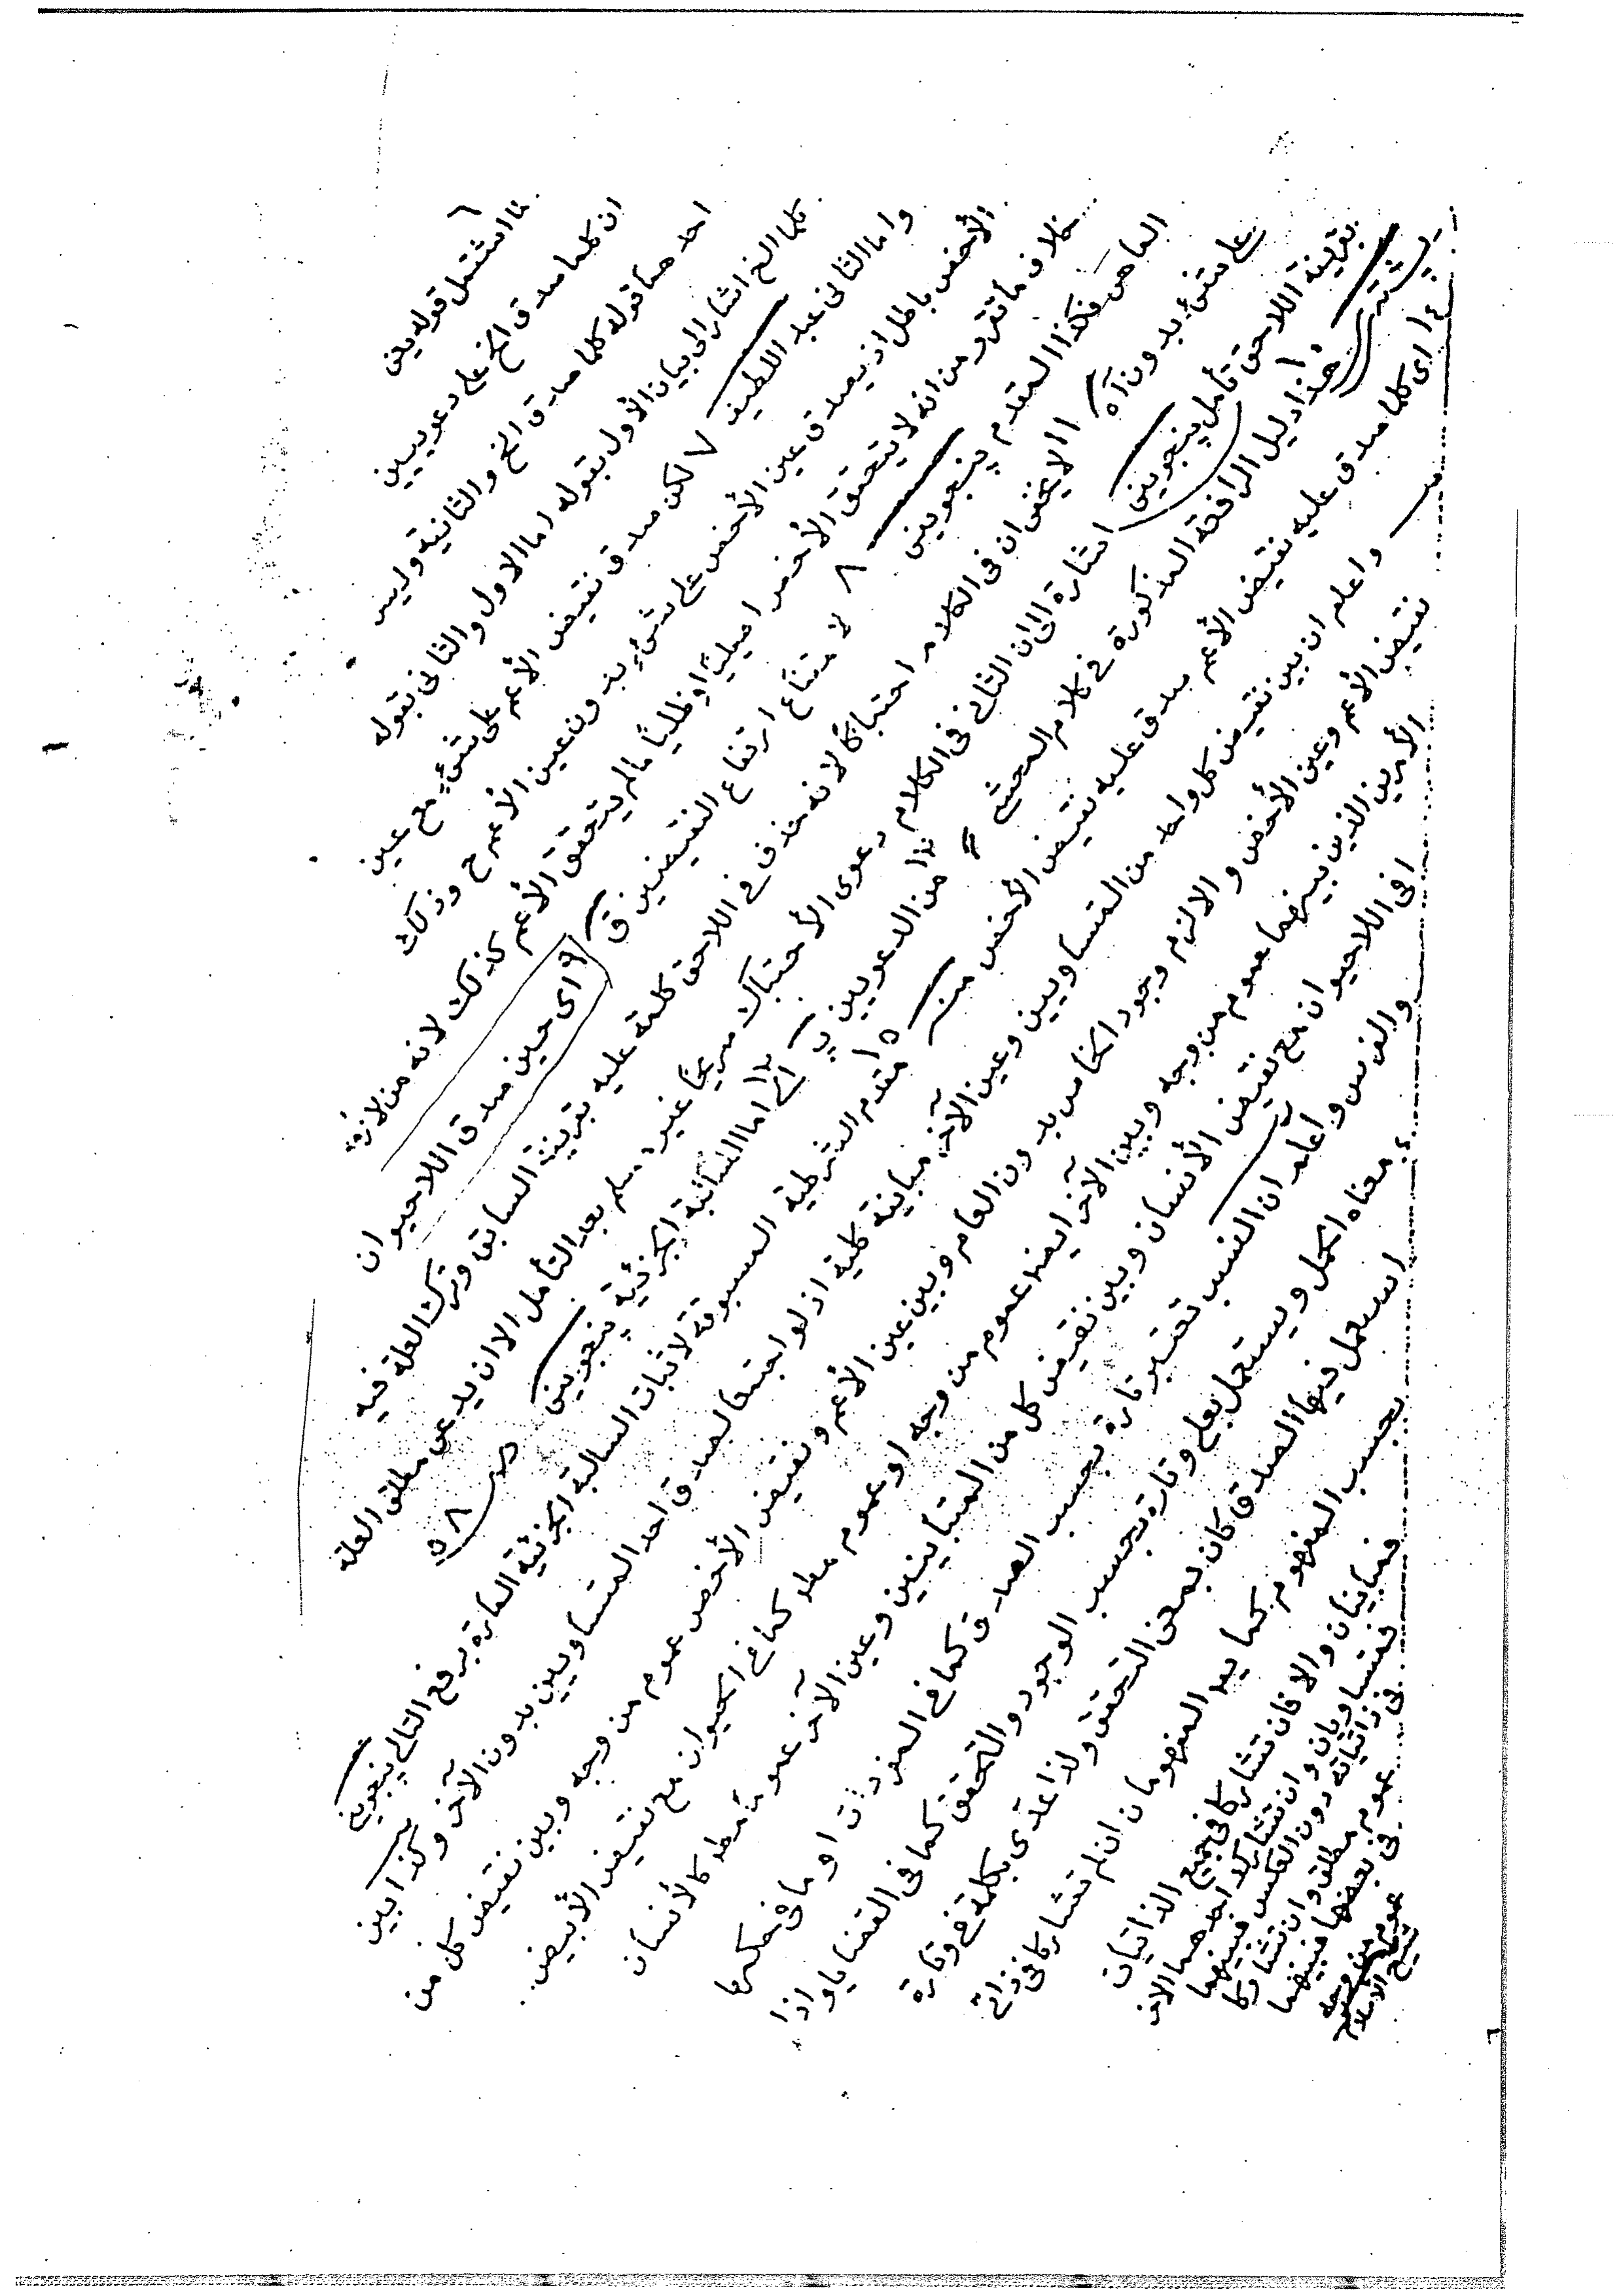 ٦ لما اشتمل قوله يعنى
ان كلما صدق الخ على دعويين
احدهما قوله كلما صدق الخ والثانية وليس
كلما الخ اشار الى بيان الأول بقوله اما الاول والثانى بقوله
واما الثانى عبد اللطيف ٧ لكن صدق نقيض الأعم على شئ مع عين
الأخص باطل اذ يصدق عين الأخص على شئ بدون عين الأعم ح وذلك
خلاف ما تقرر من انه لا يتحقق الأخص اصليًا او ظليًا مالم يتحقق الأعم كذلك لانه من لازمه
فكذا المقدم پنجوينى ٨ لامتناع ارتفاع النقيضين ق ٩ اى حين صدق اللاحيوان
على شئ بدون اه ١١ لا يخفى ان فى الكلام احتباكا لانه حذف فى اللاحق كلمة عليه بقرينة السابق وترك العلة فيه
بقرينة اللاحق تأمل پنجوينى اشارة الى ان الثانى فى الكلام دعوى الأحتباك صريحًا غير مسلم بعد التأمل الا ان يدعى مطلق العلة
١٠ هذا دليل الرافعة المذكورة فى كلام المحشى = ١٢ من الدعويين پ ١٣ اى اما السالبة الجزئية پنجوينى ص ٥٨
١٤ اى كلما صدق عليه نقيض الأعم صدق عليه نقيض الأخص منه ١٥ مقدم الشرطية المسبوقة لأثبات السالبة الجزئية المارة برفع التالى پنجوينى
واعلم ان بين نقيض كل واحد من المتساويين وعين الآخر مباينة كلية اذ لو اجتمعا لصدق احد المتساويين بدون الآخر وكذا بين
نقيض الأعم وعين الأخص والا لزم وجود الخاص بدون العام وبين عين الأعم ونقيض الأخص عموم من وجه وبين نقيض كل من
الأمرين الذين بينهما عموم من وجه وبين الآخر ايضا عموم من وجه او عموم مط كما فى الحيوان مع نقيض الأبيض
او فى اللاحيوان مع نقيض الأنسان وبين نقيض كل من المتباينين وعين الآخر عموم مط كالأنسان
والفرس واعلم ان النسب تعتبر تارة بحسب الصدق كما فى المفردات او ما فى حكمها
معناه الحمل ويستعمل بعلى وتارة بحسب الوجود والتحقق كما فى القضايا واذا
استعمل فيها الصدق كان بمعنى التحقق ولذا عدى بكلمة فى وتارة
بحسب المفهوم كما يد المفهومان ان لم تشاركا فى ذاتى
فمتباينان والا فان تشاركا فى جميع الذاتيات
فمتساويان وان تشارك احدهما الآخر
فى ذاتياته دون العكس فبينهما
عموم مطلق وان تشاركا
فى بعضها فبينهما
عموم من وجه
شيخ الاسلام